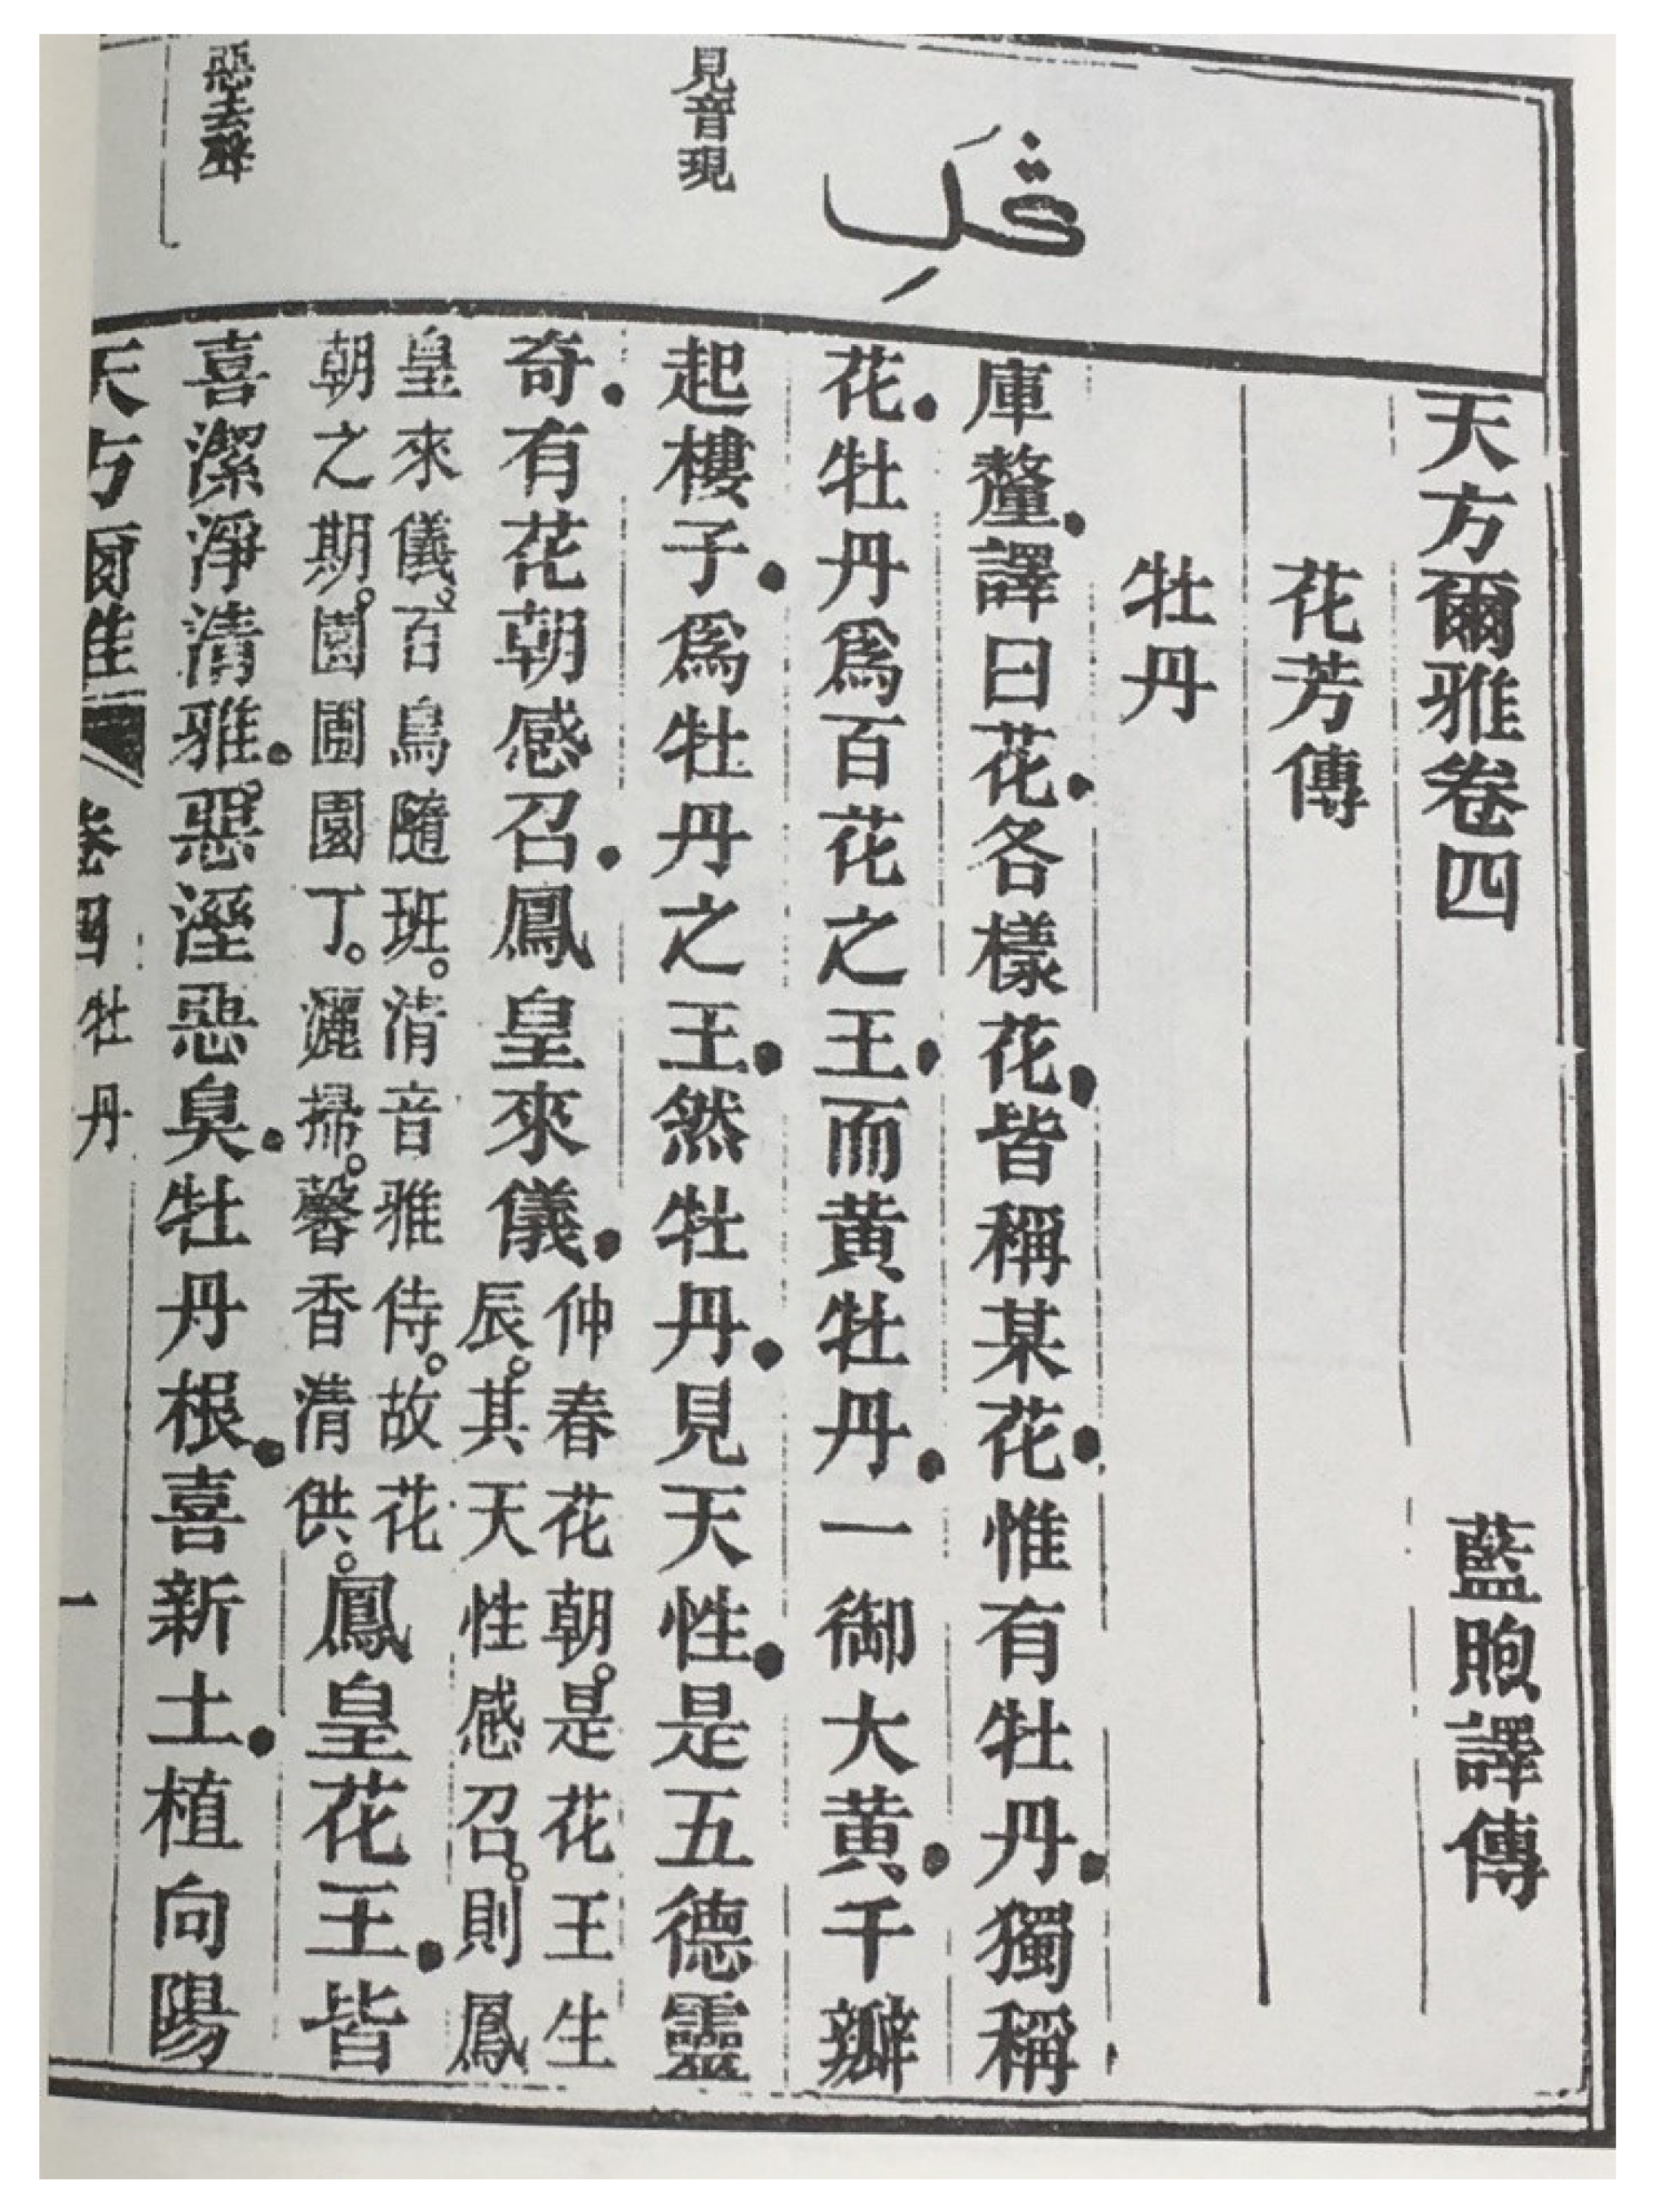 天方爾雅卷四 藍煦譯傳
花芳傳
牡丹
庫釐、譯曰花、各樣花、皆稱某花、惟有牡丹、獨稱
花、牡丹爲百花之王、而黄牡丹、一御大黄、千瓣
見音現
起樓子、爲牡丹之王、然牡丹、見天性、是五德靈
奇、有花朝感召、鳳皇來儀、
仲春花朝。是花王生
辰。其天性感召。則鳳
皇來儀。百鳥隨班。清音雅侍。故花
朝之期。園圃園丁。灑掃。馨香清供。
鳳皇花王、皆
惡去聲
喜潔淨清雅、惡溼惡臭、牡丹根、喜新土、植向陽
天方爾雅 卷四 牡丹 一